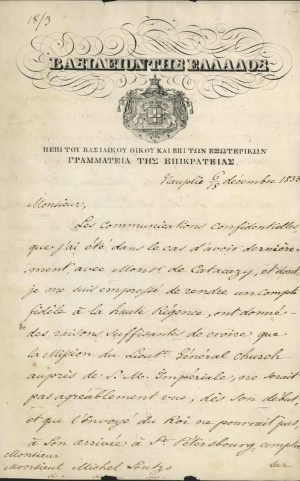 18/3
ΒΑΣΙΛΕΙΟΝ ΤΗΣ ΕΛΛΑΔΟΣ
Η ΕΠΙ ΤΟΥ ΒΑΣΙΛΙΚΟΥ ΟΙΚΟΥ ΚΑΙ ΕΠΙ ΤΩΝ ΕΞΩΤΕΡΙΚΩΝ
ΓΡΑΜΜΑΤΕΙΑ ΤΗΣ ΕΠΙΚΡΑΤΕΙΑΣ.
Nauplie décembre 1833
Monsieur,
Les communications confidentielles,
que j'ai été dans le cas d'avoir dernière-
ment avec Monsr. de Catacazy, et dont
je me suis empressé de rendre un compte
fidèle à la haute Régence, ont donné
des raisons suffisantes de croire que
la Mission du Lieutt. Général Church
auprès de S. M. Impériale, ne serait
pas agréablement vue, dès son début,
et que l'Envoyé du Roi ne pourrait pas,
à son arrivée à St. Pétersbourg, compter
Monsieur
sur
Monsieur Michel Soutzo